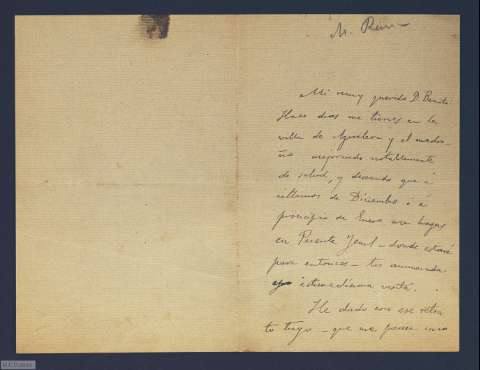 Mi muy querido D. Benito:
Hace dias me tienes en la
villa de Aguilera y el madro-
ño mejorando notablemente
de salud, y deseando que á
últimos de Diciembre ó á
principio de Enero me hagas
en Puente Jenil – donde estaré
para entonces – tu anunciada
visita.
He dado con ese retra
to tuyo – que me parece una